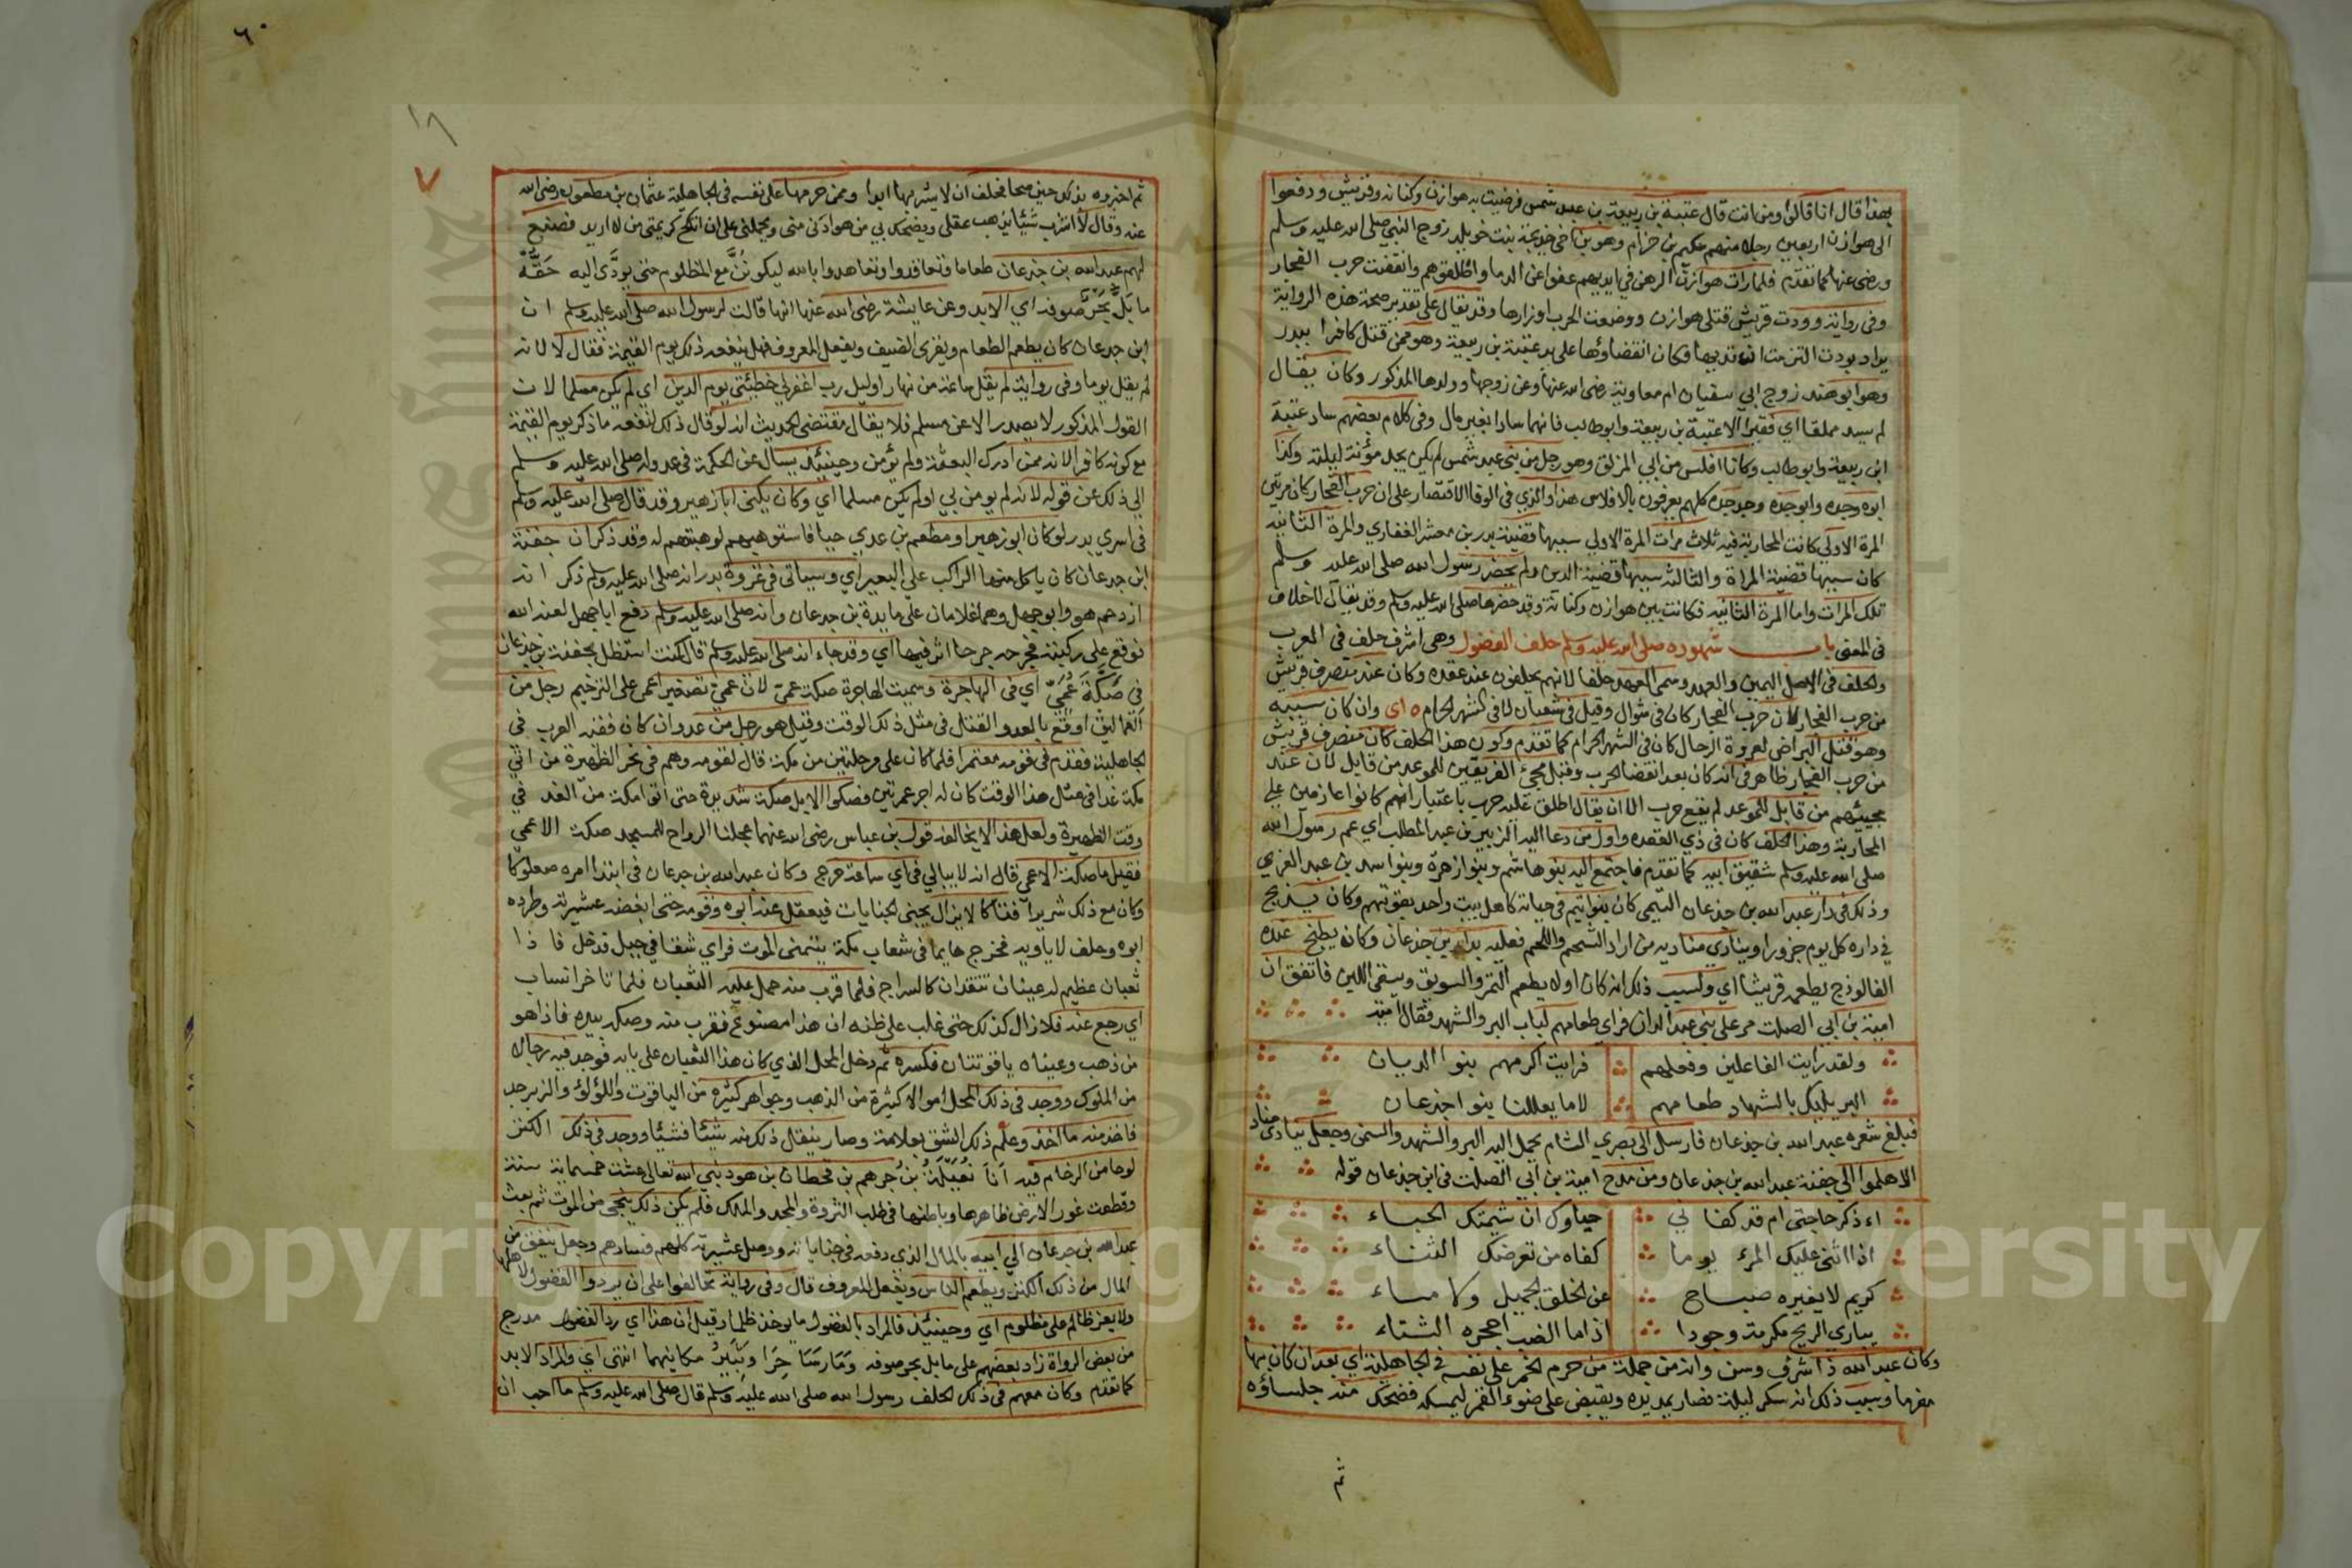 بهذا قال انا قالوا ومن انت قال عتبة بن ربيعة بن عبد شمس فرضيت به هوازن وكنانه وقريش ودفعوا
الى هوازن اربعين رجلا منهم حكيم بن حزام وهو بن اخي خديجة بنت خويلد زوج النبي صلى الله عليه وسلم
ورضى عنها كما تقدم فلما رات هوازن الرهن في ايديهم عفوا عن الدما واطلقوهم وانقضت حرب الفجار
وفى رواية وودت قريش قتلى هوازن ووضعت الحرب اوزارها وقد يقال على تقدير صحة هذه الرواية
يراد بودت التزمت ان تديها فكان انقضاؤها على يد عتبة بن ربيعة وهو ممن قتل كافرا ببدر
وهو ابو هند زوج ابي سفيان ام معاوية رضى الله عنها وعن زوجها وولدها المذكور وكان يقال
لم يسد مملقا اي فقيرا الا عتبة بن ربيعة وابو طالب فانهما سادا بغير مال وفى كلام بعضهم ساد عتبة
ابن ربيعة وابو طالب وكانا افلس من ابي المزلق وهو رجل من بني عبد شمس لم يكن يجد مؤنة ليلته وكذا
ابوه وجده وابو جده وجد جده كلهم يعرفون بالافلاس هذا والذي فى الوفا الاقتصار على ان حرب الفجار كان مرتين
المرة الاولى كانت المحاربة فيه ثلاث مرات المرة الاولى سببها قضية بدر بن معشر الغفاري والمرة الثانيه
كان سببها قضية المراة والثالثه سببها قضية الدين ولم يحضر رسول الله صلى الله عليه وسلم
تلك المرات واما المرة الثانيه فكانت بين هوازن وكنانة وقد حضرها صلى الله عليه وسلم وقد يقال لا خلاف
فى المعنى باب شهوده صلى الله عليه وسلم حلف الفضول وهى اشرف حلف في العرب
والحلف فى الاصل اليمين والعهد وسمى العهد حلفا لانهم يحلفون عند عقده وكان عند منصرف قريش
من حرب الفجار لان حرب الفجار كان فى شوال وقيل فى شعبان لا فى الشهر الحرام ه اى وان كان سببه
وهو قتل البراض لعروة الرحال كان فى الشهر الحرام كما تقدم وكون هذا الحلف كان منصرف قريش
من حرب الفجار ظاهر فى انه كان بعد انقضا الحرب وقبل مجيء الفريقين للموعد من قابل لان عند
مجيئهم من قابل للموعد لم يقع حرب الا ان يقال اطلق عليه حرب باعتبار انهم كانوا عازمين على
المحاربة وهذا الحلف كان فى ذي القعده واول من دعا اليه الزبير بن عبد المطلب اي عم رسول الله
صلى الله عليه وسلم شقيق ابيه كما تقدم فاجتمع اليه بنو هاشم وبنوا زهرة وبنوا اسد بن عبد العزي
وذلك فى دار عبد الله بن جذعان التيمى كان بنوا تيم فى حياته كاهل بيت واحد يقوتهم وكان يذبح
في داره كل يوم جزورا وينادي مناديه من اراد الشحم واللحم فعليه بدار بن جذعان وكان يطبخ عنده
الفالوذج يطعمه قريشا اي ولسبب ذلك انه كان اولا يطعم التمر والسويق ويسقى اللبن فاتفق ان
امية بن ابي الصلت مر على بني عبد المدان فراى طعامهم لباب البر والشهد فقال امية
ولقد رايت الفاعلين وفعلهم فرايت اكرمهم بنوا الديان
البر يلبك بالشهاد طعامهم لا ما يعللنا بنو اجذعان
فبلغ شعره عبد الله بن جذعان فارسل الى بصري الشام يحمل اليه البر والشهد والسمن وجعل ينادي مناد
الا هلموا الى جفنة عبد الله بن جذعان ومن مدح امية بن ابي الصلت فى ابن جذعان قوله
اء ذكر حاجتى ام قد كفا لي حياوك ان شيمتك الحباء
اذا اثنى عليك المرء يوما كفاه من تعرضك الثناء
كريم لا يغيره صباح عن الخلق الجميل ولا مساء
يباري الريح مكرمة وجودا اذا ما الضب احجره الشتاء
وكان عبد الله ذا شرف وسن وانه من جملة من حرم الخمر على نفسه في الجاهلية اي بعد ان كان بها
مغرما وسبب ذلك انه سكر ليلة فصار يمد يده ويقبض على ضوء القمر ليمسكه فضحك منه جلساؤه
ثم
٦٠
٧
ثم اخبروه بذلك حين صحا فحلف ان لا يشربها ابدا وممن حرمها على نفسه فى الجاهلية عثمان بن مظعون رضى الله
عنه وقال لا اشرب شيئا يذهب عقلى ويضحك بي من هو ادنى منى ويحملنى على ان انكح كريمتى من لا اريد فصنع
لهم عبد الله بن جذعان طعاما وتعاقدوا وتعاهدوا بالله ليكونن مع المظلوم حتى يودى اليه حقه
ما بل بحر صوفه اي الابد وعن عايشة رضى الله عنها انها قالت لرسول الله صلى الله عليه وسلم ان
ابن جدعان كان يطعم الطعام ويقرى الضيف ويفعل المعروف فهل ينفعه ذلك يوم القيمة فقال لا لانه
لم يقل يوما وفى رواية لم يقل ساعة من نهار او ليل رب اغفر لي خطيئتى يوم الدين اي لم يكن مسلما لان
القول المذكور لا يصدر الا عن مسلم فلا يقال مقتضى الحديث انه لو قال ذلك لنفعه ما ذكر يوم القيمة
مع كونه كافرا لانه ممن ادرك البعثة ولم يؤمن وحينئذ يسال عن الحكمة فى عدوله صلى الله عليه وسلم
الى ذلك عن قوله لانه لم يومن بي او لم يكن مسلما اي وكان يكنى ابا زهير وقد قال صلى الله عليه وسلم
فى اسري بدر لو كان ابو زهير او مطعم بن عدي حيا فاستوهبهم لوهبتهم له وقد ذكر ان جفنة
ابن جدعان كان ياكل منها الراكب على البعير اي وسياتى فى غزوة بدر انه صلى الله عليه وسلم ذكر انه
ازدحم هو وابو جهل وهما غلامان على مايدة بن جدعان وانه صلى الله عليه وسلم دفع ابا جهل لعنه الله
فوقع على ركبته فجرحه جرحا اثر فيها اي وقد جاء انه صلى الله عليه وسلم قال كنت استظل بجفنة بن جذعان
فى صكة عمي اي فى الهاجرة وسميت الهاجرة صكة عمى لان عمى تصغير اعمى على الترخيم رجل من
العماليق اوقع بالعدو القتل فى مثل ذلك الوقت وقيل هو رجل من عدوان كان فقيه العرب في
الجاهلية فقدم فى قومه معتمرا فلما كان على مرحلتين من مكة قال لقومه وهم فى نحر الظهيرة من اتى
مكة غدا فى مثل هذا الوقت كان له اجر عمرتين فصكوا الابل صكة شديدة حتى اتوا مكة من الغد في
وقت الظهيرة ولعل هذا لا يخالفه قول بن عباس رضى الله عنهما عجلنا الرواح للمسجد صكة الاعمي
فقيل ما صكة الاعمي قال انه لا يبالي فى اي ساعة خرج وكان عبد الله بن جدعان فى ابتدا امره صعلوكا
وكان مع ذلك شريرا فتاكا لا يزال يجنى الجنايات فيعقل عنه ابوه وقومه حتى ابغضه عشيرته وطرده
ابوه وحلف لا ياويه فخرج هايما فى شعاب مكة يتمنى الموت فراي شقا في جبل فدخل فاذا
ثعبان عظيم له عينان تتقدان كالسراج فلما قرب منه حمل عليه الثعبان فلما تاخر انساب
اي رجع عنه فلا زال كذلك حتى غلب على ظنه ان هذا مصنوع فقرب منه ومسكه بيده فاذا هو
من ذهب وعيناه ياقوتتان فكسره ثم دخل المحل الذي كان هذا الثعبان على بابه فوجد فيه رجالا
من الملوك ووجد فى ذلك المحل اموالا كثيرة من الذهب وجواهر كثيرة من الياقوت واللؤلؤ والزبرجد
فاخذ منه ما اخذ وعلم ذلك الشق بعلامة وصار ينقل ذلك منه شيئا فشيئا ووجد فى ذلك الكنز
لوحا من الرخام فيه انا نفيلة بن جرهم بن قحطان بن هود نبي الله تعالى عشت خمسماية سنة
وقطعت غور الارض ظاهرها وباطنها فى طلب الثروة والمجد والملك فلم يكن ذلك ينجى من الموت ثم بعث
عبد الله بن جدعان الى ابيه بالمال الذي دفعه فى جناياته ووصل عشيرته كلهم فسادهم وجعل ينفق من
المال من ذلك الكنز ويطعم الناس ويفعل المعروف قال وفى رواية تحالفوا على ان يردوا الفضول لاهلها
ولا يعز ظالم على مظلوم اي وحينئذ فالمراد بالفضول ما يوخذ ظلما وقيل ان هذا اي رد الفضول مدرج
من بعض الرواة زاد بعضهم على ما بل بحر صوفه وما رسا حرا وثبير مكانهما انتهى اي والمراد الابد
كما تقدم وكان معهم فى ذلك الحلف رسول الله صلى الله عليه وسلم قال صلى الله عليه وسلم ما احب ان
Copyright © King Saud University